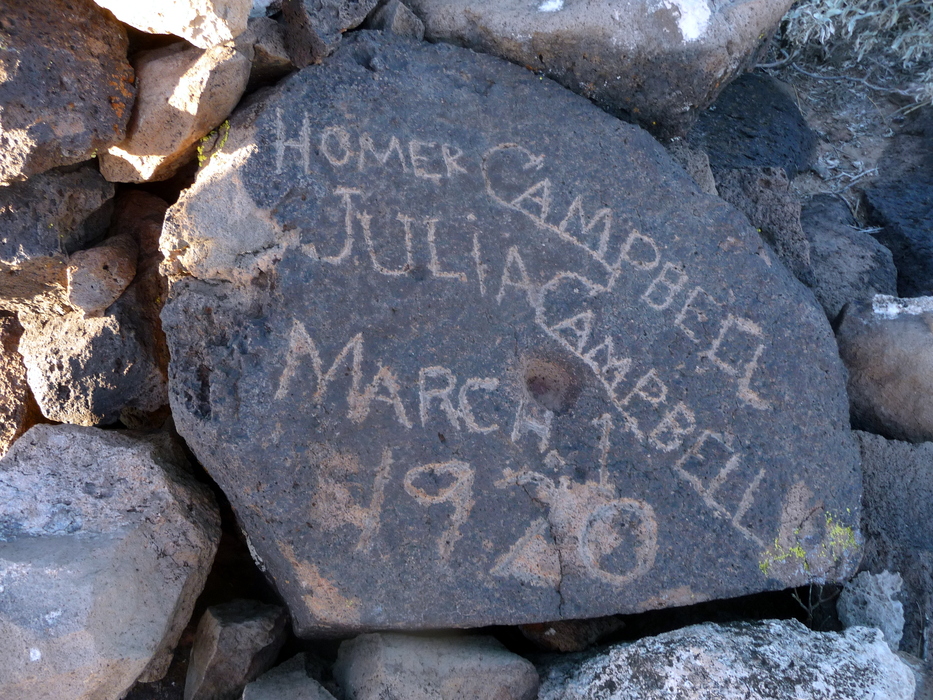 HOMER CAMPBELL
JULIA CAMPBELL
MARCH 1
1920